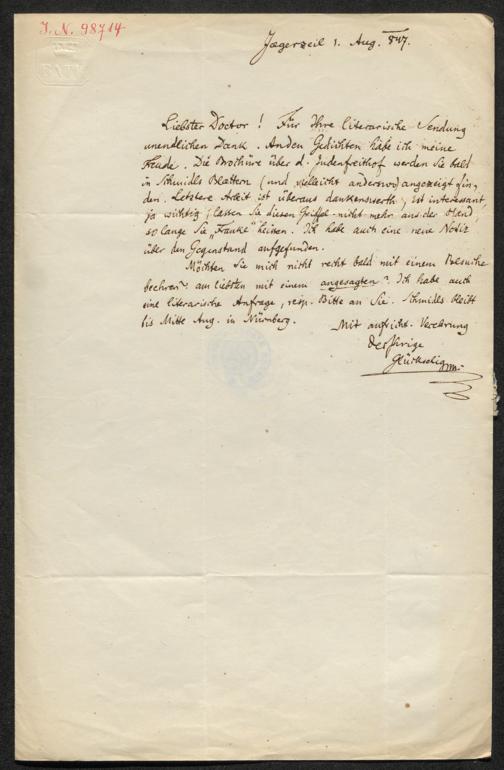 J. N. 98714
BATH
Jaegerzeil 1. Aug. 847.
Liebster Doctor! Für Ihre literarische Sendung
unendlichen Dank. An den Gedichten habe ich meine
Freude. Die Brochüre über d. Judenfreithof werden Sie bald
in Schmidls Blättern (und vielleicht anderswo) angezeigt fin-
den. Letztere Arbeit ist überaus dankenswerth, ist interessant,
ja wichtig; lassen Sie diesen Griffel nicht mehr aus der Hand,
so lange Sie „Frankl" heissen. Ich habe auch eine neue Notiz
über den Gegenstand aufgefunden.
Möchten Sie mich nicht recht bald mit einem Besuche
beehren? am liebsten mit einem angesagten? Ich habe auch
eine literarische Anfrage, resp. Bitte an Sie. Schmidl bleibt
bis Mitte Aug. in Nürnberg.
Mit aufricht. Verehrung
der Ihrige
Glückselig